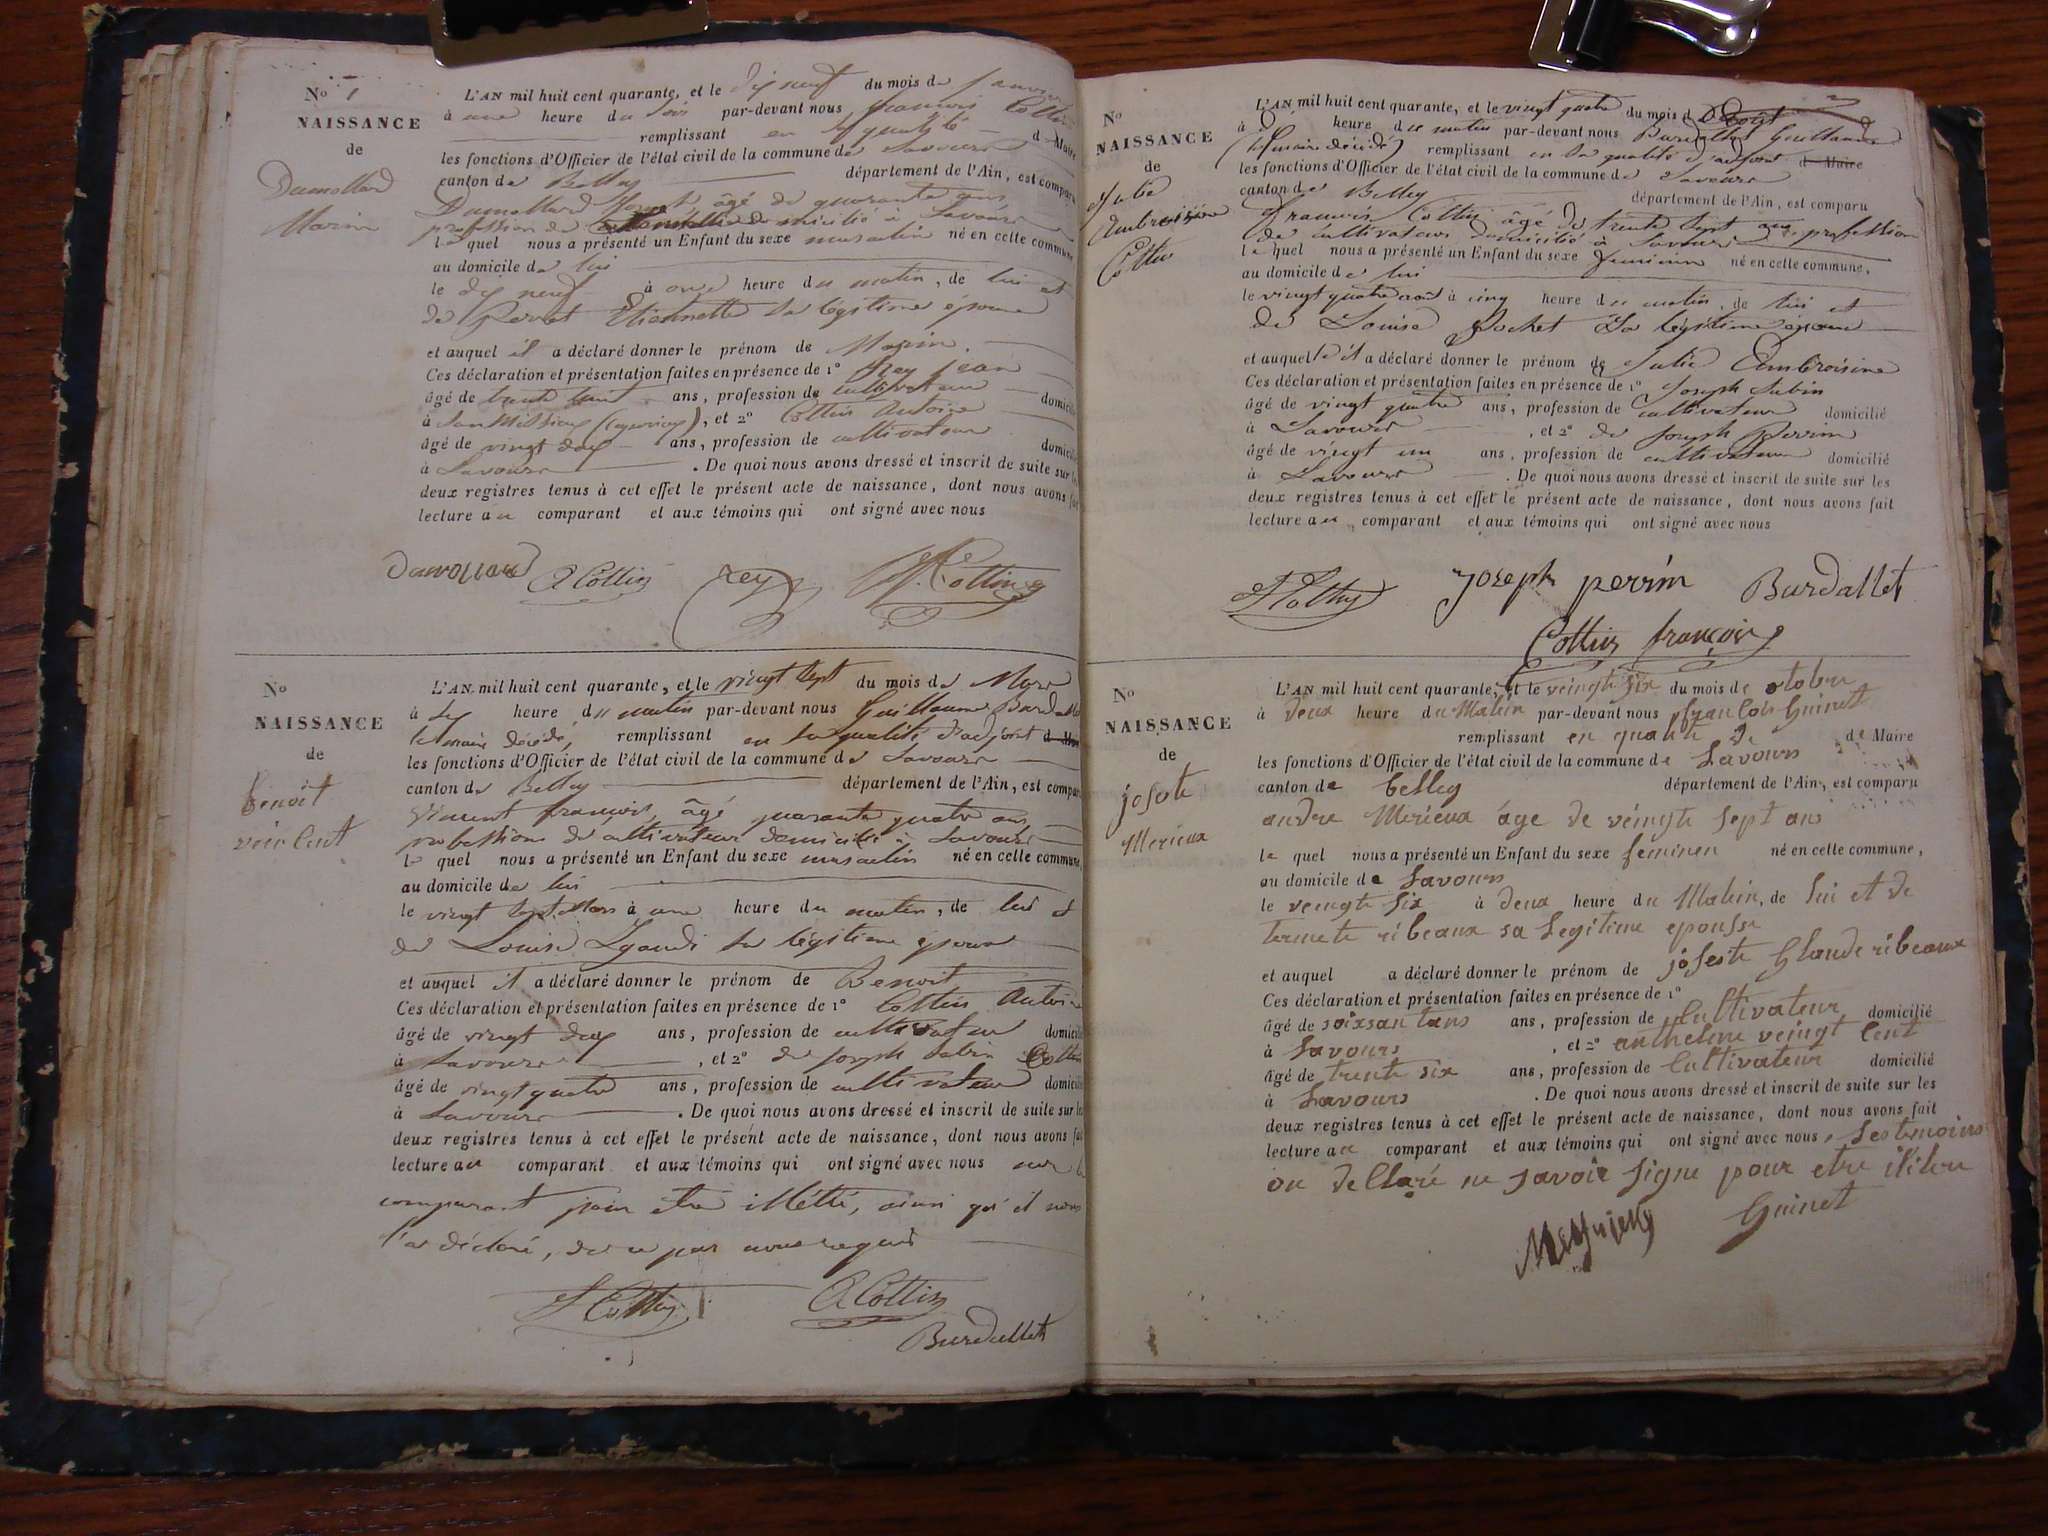 No 1
NAISSANCE
de
Dumollard
Marin
L'AN mil huit cent quarante, et le dix neuf du mois de janvier
à une heure du soir par-devant nous françois Cottin
remplissant en sa qualité de Maire
les fonctions d'Officier de l'état civil de la commune de Savours
canton de Belley département de l'Ain, est comparu
Dumollard âgé de quarante ans
profession de domicilié à Savours
le quel nous a présenté un Enfant du sexe masculin né en cette commune
au domicile de lui
le dix neuf à onze heure du matin, de lui et
de Perret Etiennette sa légitime épouse
et auquel il a déclaré donner le prénom de Marin.
Ces déclaration et présentation faites en présence de 1o Rey jean
âgé de trente ans, profession de cultivateur domicilié
à , et 2o Cottin Antoine
âgé de vingt deux ans, profession de cultivateur domicilié
à Savours . De quoi nous avons dressé et inscrit de suite sur les
deux registres tenus à cet effet le présent acte de naissance, dont nous avons fait
lecture au comparant et aux témoins qui ont signé avec nous
A Cottin rey Cottin
No
NAISSANCE
de
Benoit
veincent
L'AN mil huit cent quarante, et le vingt sept du mois de Mars
à dix heure du matin par-devant nous Guillaume Burdallet
le maire décédé, remplissant en sa qualité d'adjoint de Maire
les fonctions d'Officier de l'état civil de la commune de Savours
canton de Belley département de l'Ain, est comparu
Vincent françois, âgé quarante quatre ans
profession de cultivateur domicilié à Savours
le quel nous a présenté un Enfant du sexe masculin né en cette commune,
au domicile de lui
le vingt sept Mars à une heure du matin, de lui et
de Louise sa légitime épouse
et auquel il a déclaré donner le prénom de Benoit
Ces déclaration et présentation faites en présence de 1o Cottin Antoine
âgé de vingt deux ans, profession de cultivateur domicilié
à Savours , et 2o de joseph Subin Cottin
âgé de vingt quatre ans, profession de cultivateur domicilié
à Savours . De quoi nous avons dressé et inscrit de suite sur les
deux registres tenus à cet effet le présent acte de naissance, dont nous avons fait
lecture au comparant et aux témoins qui ont signé avec nous non le
comparant pour être illétré, ainsi qu'il nous
l'a déclaré, de ce par nous requis
J Cottin A Cottin
Burdallet
No
NAISSANCE
de
Julie
Ambroisine
Cottin
L'AN mil huit cent quarante, et le vingt quatre du mois d'Aout
à heure du matin par-devant nous Burdallet Guillaume
(le maire décédé) remplissant en sa qualité d'adjoint de Maire
les fonctions d'Officier de l'état civil de la commune de Savours
canton de Belley département de l'Ain, est comparu
François Cottin âgé de trente sept ans, profession
de cultivateur domicilié à Savours
le quel nous a présenté un Enfant du sexe feminin né en cette commune,
au domicile de lui
le vingt quatre août à cinq heure du matin, de lui et
de Louise Pochet sa légitime épouse
et auquelle il a déclaré donner le prénom de Julie Ambroisine
Ces déclaration et présentation faites en présence de 1o Joseph Subin
âgé de vingt quatre ans, profession de cultivateur domicilié
à Savours , et 2o de Joseph Perrin
âgé de vingt un ans, profession de cultivateur domicilié
à Savours . De quoi nous avons dressé et inscrit de suite sur les
deux registres tenus à cet effet le présent acte de naissance, dont nous avons fait
lecture au comparant et aux témoins qui ont signé avec nous
J Cottin joseph perrin Burdallet
Cottin françois
No
NAISSANCE
de
josete
Merieux
L'AN mil huit cent quarante, et le veingte six du mois de otobre
à deux heure du Matin par-devant nous françois Guinet
remplissant en qualité de de Maire
les fonctions d'Officier de l'état civil de la commune de Savours
canton de belley département de l'Ain, est comparu
andre Merieux âge de veingte sept ans
le quel nous a présenté un Enfant du sexe feminen né en cette commune,
au domicile de Savours
le veingte six à deux heure du Matin, de lui et de
ribeaux sa legitime epousse
et auquel a déclaré donner le prénom de josete Glaude ribeaux
Ces déclaration et présentation faites en présence de 1o
âgé de soixsantans ans, profession de Cultivateur domicilié
à Savours , et 2o antheline veingt Cent
âgé de trente six ans, profession de Cultivateur domicilié
à Savours . De quoi nous avons dressé et inscrit de suite sur les
deux registres tenus à cet effet le présent acte de naissance, dont nous avons fait
lecture au comparant et aux témoins qui ont signé avec nous, les temoins
on deClaré ne savoir signe pour etre
Guinet